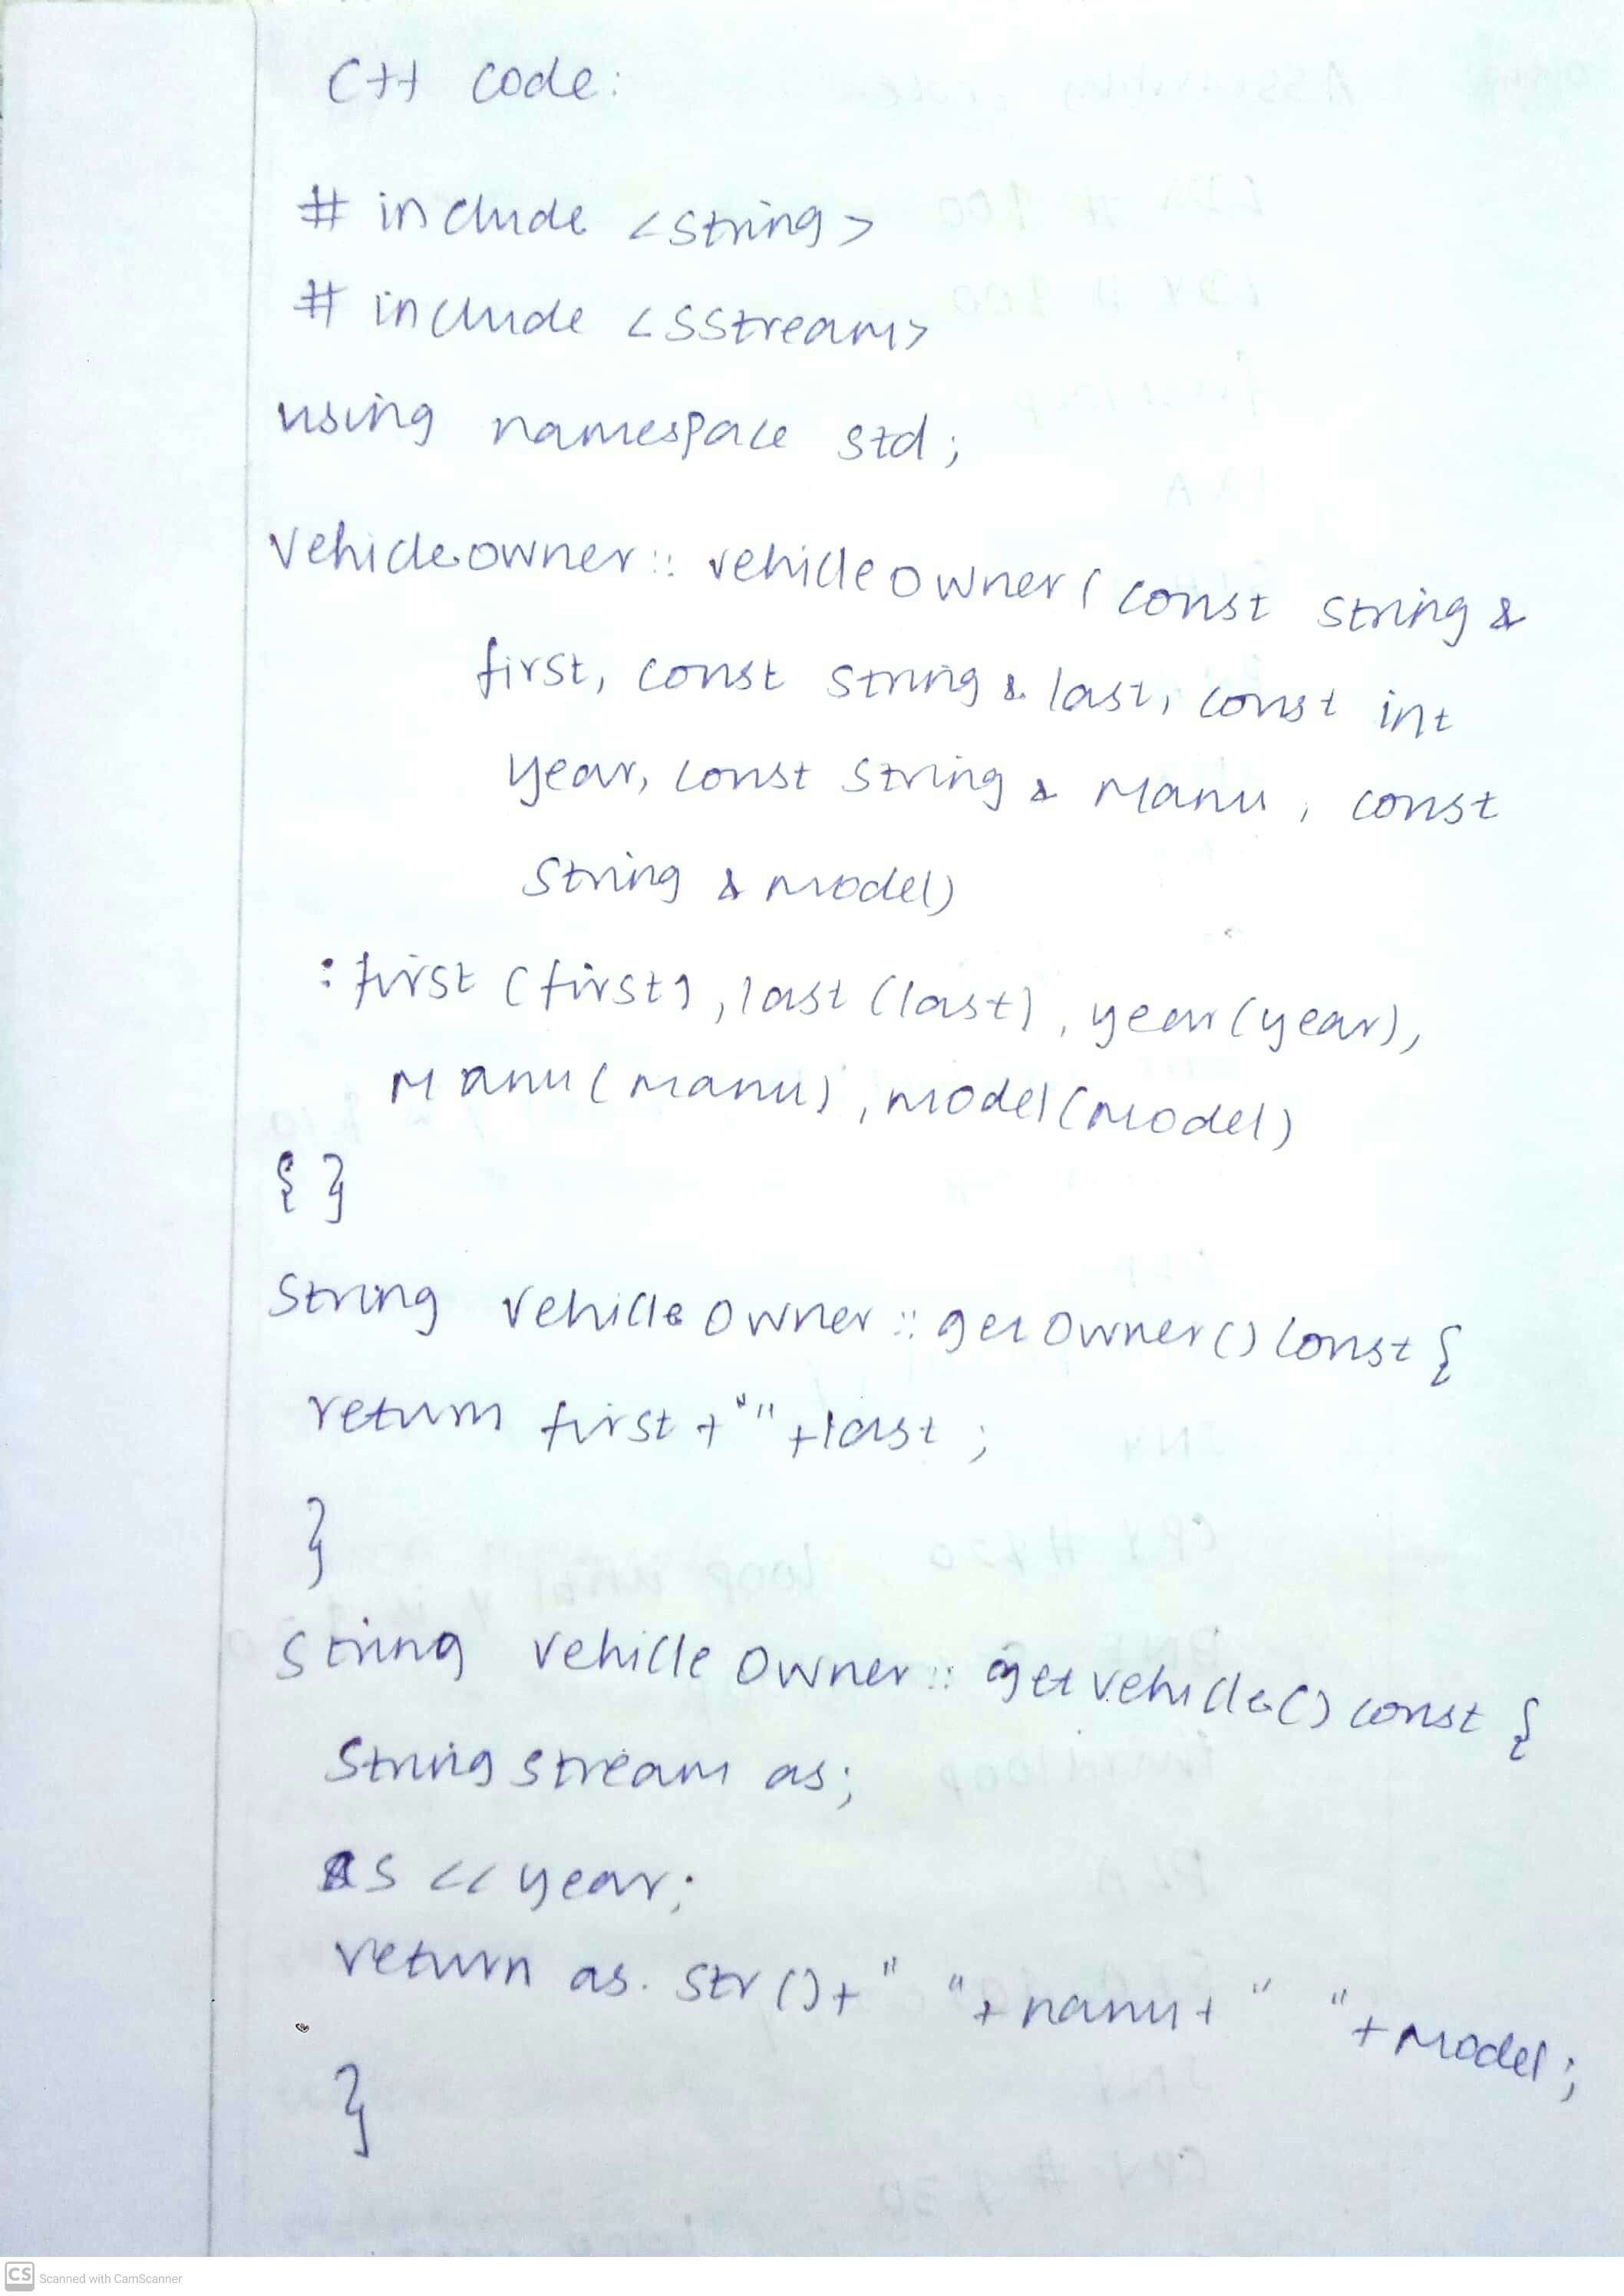 C++ code:
# include <string>
# include <sstream>
using namespace std;
Vehicleowner :: vehicleOwner ( const string &
first, const string & last, const int
year, const string & Manu, const
string & model)
: first (first), last (last), year (year),
Manu (manu), model (model)
{ }
String vehicleOwner :: getOwner() const {
return first + "" + last ;
}
String vehicleOwner :: getvehicle() const {
String stream as;
as << year;
return as. str () + " " + nanu + " " + model ;
}
CS Scanned with CamScanner